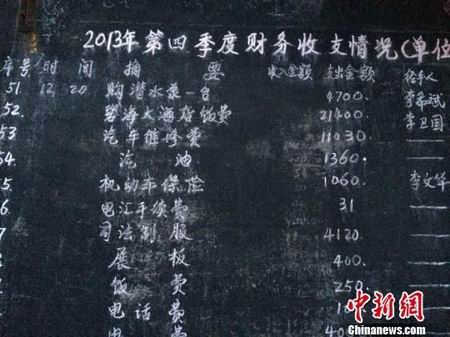 2013年第四季度财务收支情况(单位
序号 时 间 摘 要 收入金额 支出金额 经手人
51. 12 20 购潜水泵一台 4700. 李希斌
52. 碧海大酒店饭费 21400. 李卫国
53 汽车维修费 11030. —
54. 汽 油 1360. —
5 机动车保险 1060. 李文华
6. 电汇手续费 31 —
7 司法制服 4120.
8 展 板 400.
饭 费 250.
电话费
中新网
Chinanews.com